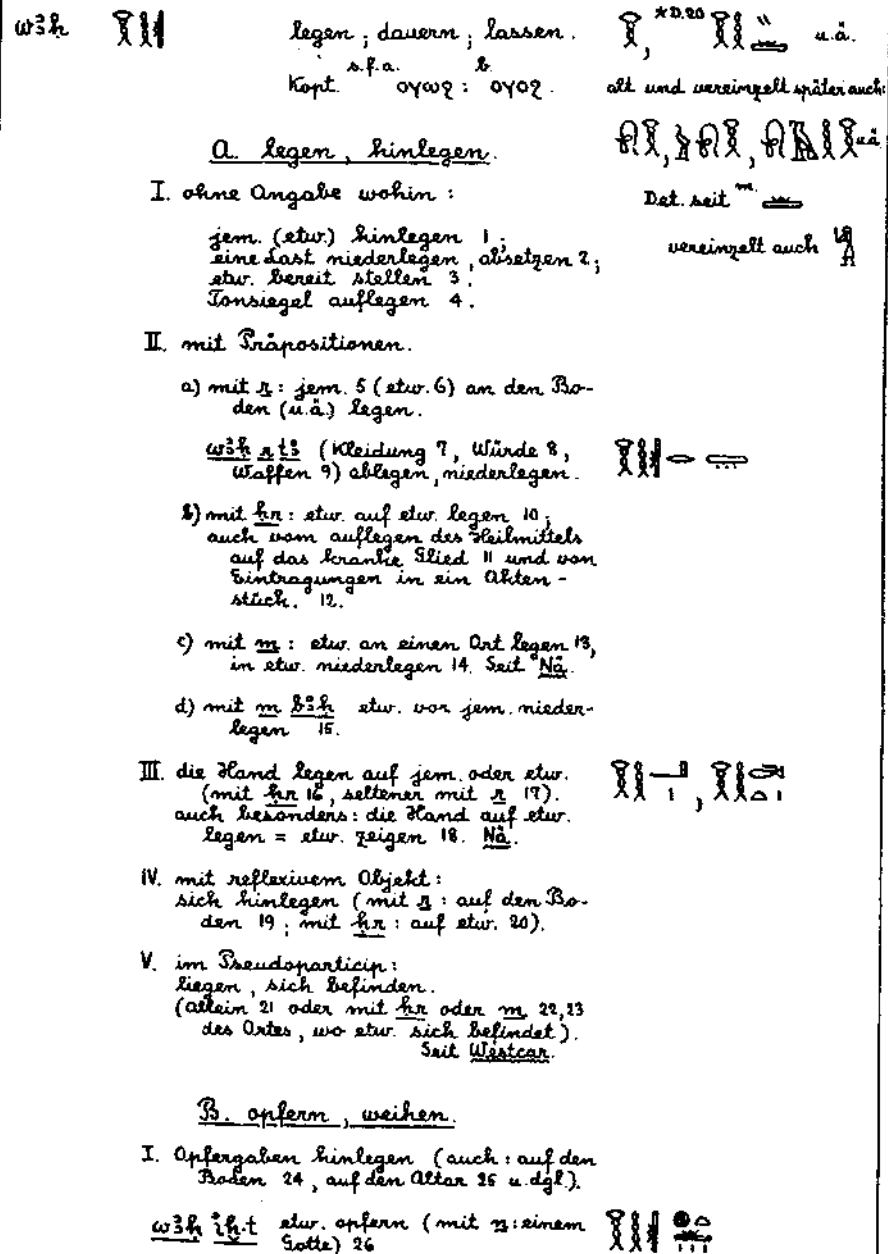 wꜣḥ 𓎝𓎛 legen ; dauern ; lassen. 𓎝, ×D.20 𓎝𓎛 " u.ä.
Kopt. s.f.a. ογωϩ : b. ογοϩ. alt und vereinzelt später auch:
u.ä
A. legen, hinlegen.
I. ohne Angabe wohin : Det. seit m.
jem. (etw.) hinlegen 1 ;
eine Last niederlegen, absetzen 2 ; vereinzelt auch
etw. bereit stellen 3.
Tonsiegel auflegen 4.
II. mit Präpositionen.
a) mit r : jem. 5 (etw. 6) an den Bo-
den (u.ä.) legen.
wꜣḥ r tꜣ (Kleidung 7, Würde 8,
Waffen 9) ablegen, niederlegen.
b) mit ḥr : etw. auf etw. legen 10 ;
auch vom auflegen des Heilmittels
auf das kranke Glied 11 und von
Eintragungen in ein Akten-
stück. 12.
c) mit m : etw. an einen Ort legen 13,
in etw. niederlegen 14. Seit Nä.
d) mit m bꜣḥ etw. vor jem. nieder-
legen 15.
III. die Hand legen auf jem. oder etw.
(mit ḥr 16, seltener mit r 17).
auch besonders : die Hand auf etw.
legen = etw. zeigen 18. Nä.
IV. mit reflexivem Objekt :
sich hinlegen (mit r : auf den Bo-
den 19 ; mit ḥr : auf etw. 20).
V. im Pseudoparticip :
liegen, sich befinden.
(allein 21 oder mit ḥr oder m 22,23
des Ortes, wo etw. sich befindet).
Seit Westcar.
B. opfern, weihen.
I. Opfergaben hinlegen (auch : auf den
Boden 24, auf den Altar 25 u.dgl.).
wꜣḥ iḫ.t etw. opfern (mit n : einem
Gotte) 26